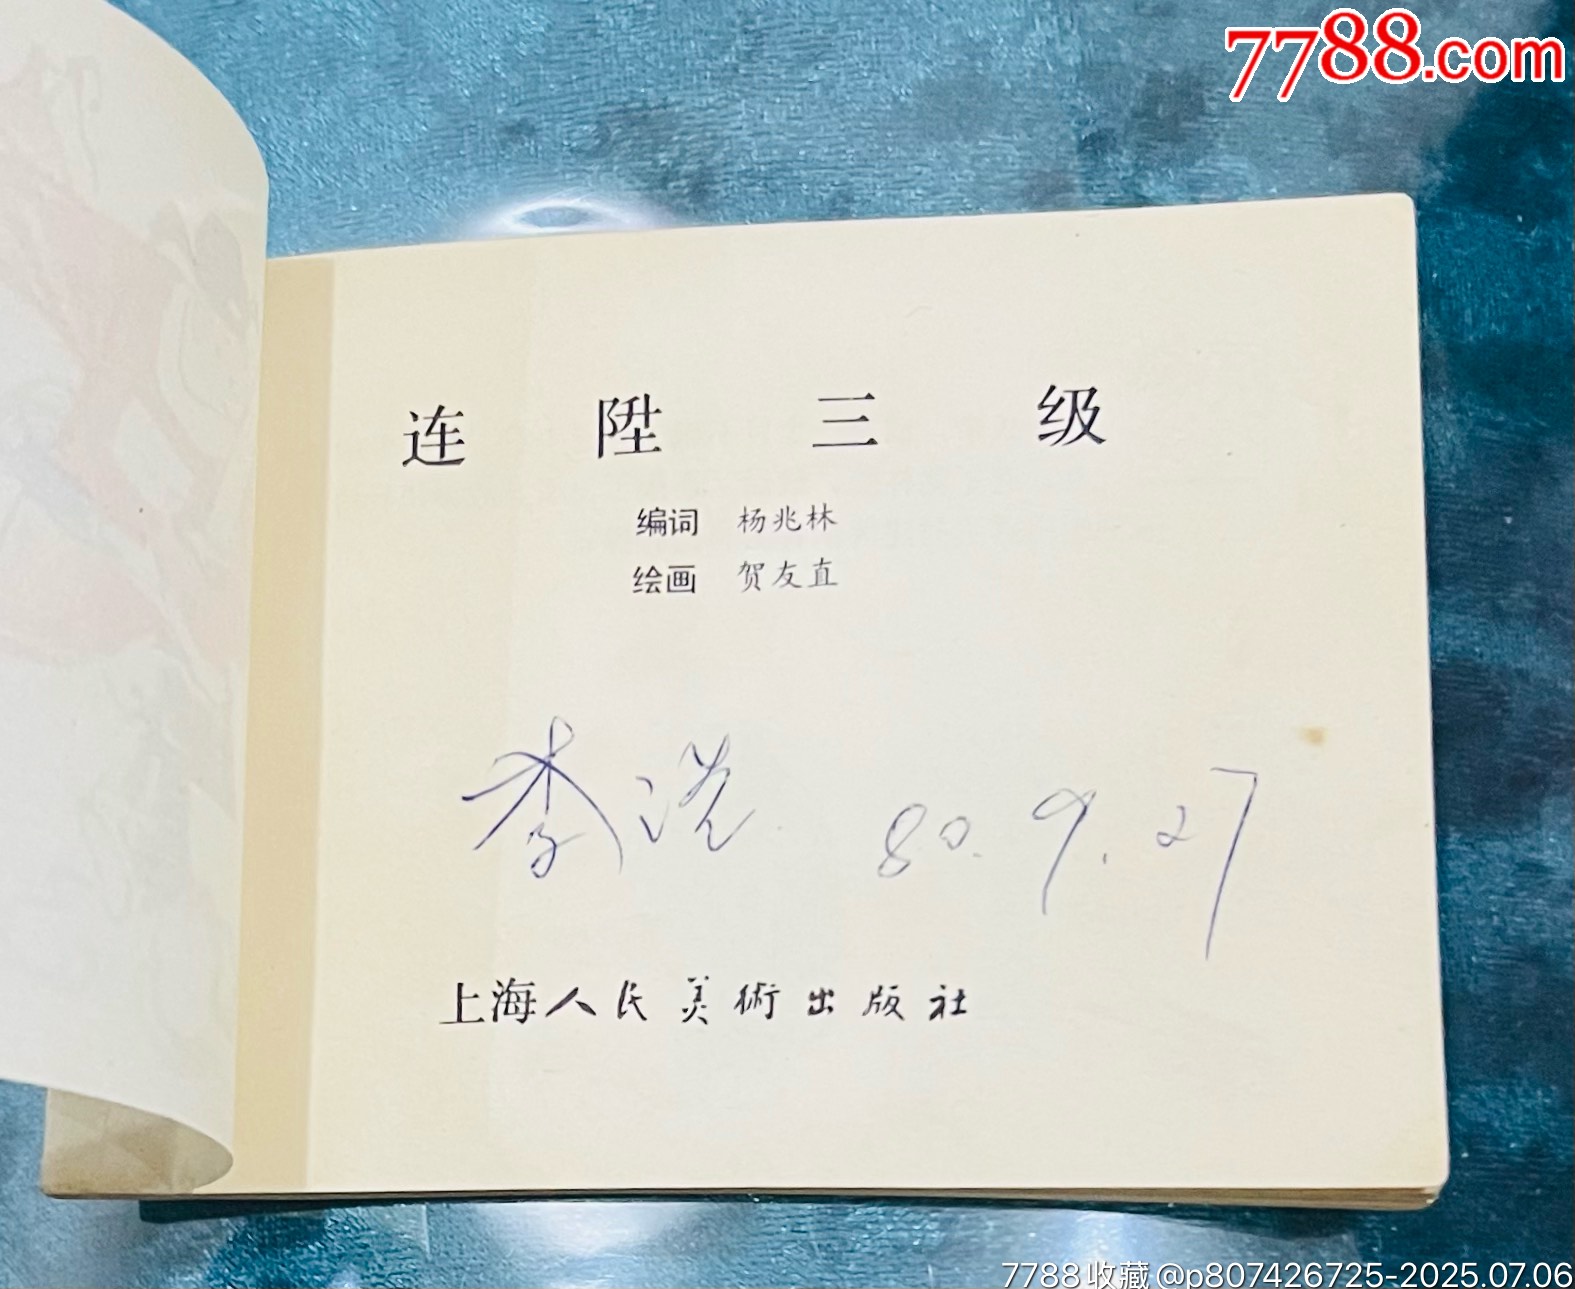 7788.com
连陞三级
编词 杨兆林
绘画 贺友直
李洸 80.9.27
上海人民美術出版社
7788收藏@p807426725-2025.07.06